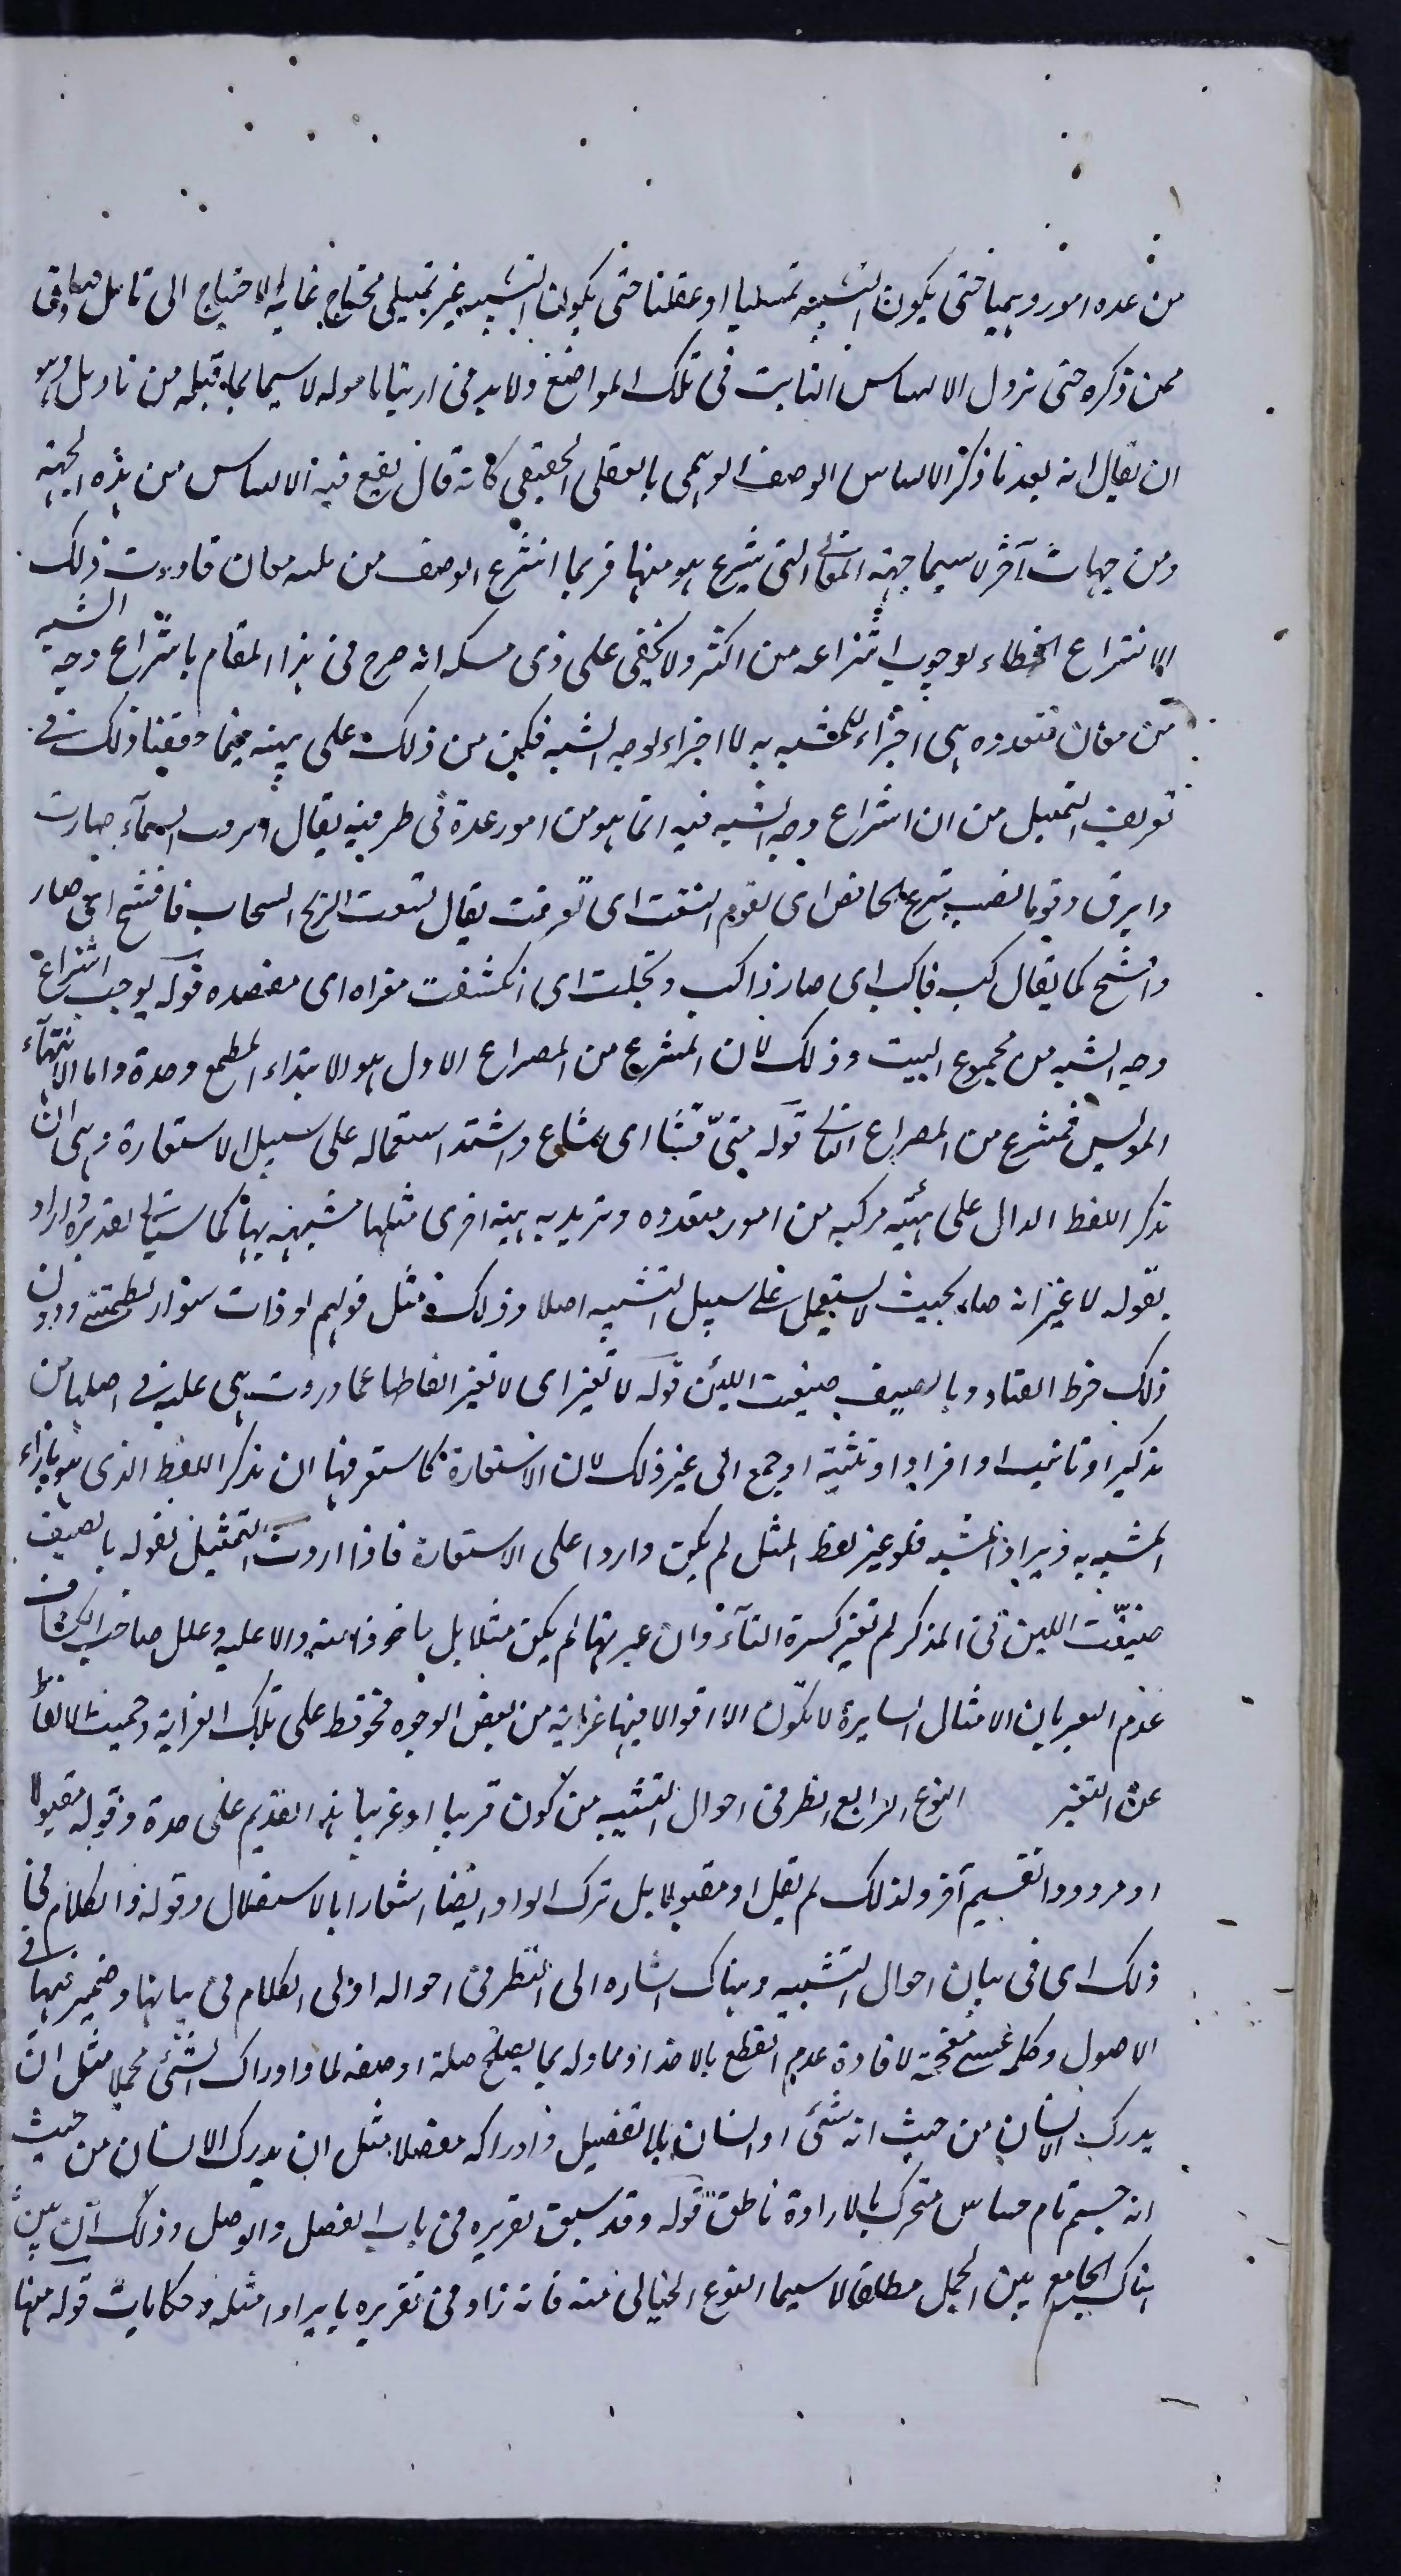 من عدة امور وهميا حتى يكون التشبيه تمثيليا او عقليا حتى يكون التشبيه غير تمثيلى محتاج غاية الاحتياج الى تامل صادق
ممن ذكره حتى تزول الالتباس الثابت فى تلك المواضع ولا بد فى لا سيما بما قبله من تاويل وهو
ان يقال انه بعد ما ذكر الالتباس الوصف الوهمى بالعقلى الحقيقى كانه قال يقع فيه الالتباس من هذه الجهة
ومن جهات آخر لا سيما جهة المعانى التى ينتزع هو منها فربما انتزع الوصف من ثلثة معان فاورث ذلك
الانتزاع الخطاء لوجوب انتزاعه من اكثر ولا يخفى على ذى مسكة انه صرح فى هذا المقام بانتزاع وجه الشبه
من معان متعددة هى اجزاء للمشبه به لا اجزاء لوجه الشبه فكن من ذلك على بينة فيما حققنا ذلك فى
تعريف التمثيل من ان انتزاع وجه الشبه فيه انما هو من امور عدة فى طرفيه يقال السمآء صارت
وابرق وقوما نصب بنزع الخافض اى لقوم اقشعت اى تفرقت يقال قشعت الريح السحاب فاقشع اى صار
كما يقال كب فاكب اى صار ذا كب وتجلت اى انكشفت مغزاه اى مقصده قوله يوجب انتزاع
وجه الشبه من مجموع البيت وذلك لان المنتزع من المصراع الاول هو الابتداء المطمع وحدة واما الانتهآء
المويس فمنتزع من المصراع الثانى قوله متى فشا اى شاع واشتد استعماله على سبيل الاستعارة وهى ان
تذكر اللفظ الدال على هيئة مركبة من امور متعددة وتريد به هيئة اخرى مثلها مشبهة بها كما سياتى تقديره اراد
بقوله لا غير انه صار بحيث لا يستعمل على سبيل التشبيه اصلا وذلك مثل قولهم لو ذات سوار لطمتنى ودون
ذلك خرط القتاد وبالصيف ضيعت اللبن قوله لا تغير اى لا تغير الفاظها عما وردت هى عليه فى اصلها من
تذكير او تانيث او افراد او تثنية او جمع الى غير ذلك لان الاستعارة كما ستعرفها ان تذكر اللفظ الذى هو بازاء
المشبه به ويراد المشبه فلو غير لفظ المثل لم يكن واردا على الاستعارة فاذا اردت التمثيل بقوله بالصيف
ضيعت اللبن فى المذكر لم تغير كسرة التآء وان غيرتها لم يكن مثلا بل ماخوذا منه ودالا عليه وعلل صاحب الكشاف
عدم التغير بان الامثال السايرة لا تكون الا اقوالا فيها غرابة من بعض الوجوه فحوفظ على تلك الغرابة وحميت الالفاظ
عن التغير النوع الرابع النظر فى احوال التشبيه من كون قريبا او غريبا هذا تقسيم على حدة وقوله مقبولا
او مردودا تقسيم آخر ولذلك لم يقل او مقبولا بل ترك الواو ايضا اشعارا بالاستقلال وقوله والكلام فى
ذلك اى فى بيان احوال التشبيه وهناك اشارة الى النظر فى احواله او الى الكلام فى بيانها وضمير فيها فى
الاصول وكلمة عسى مقحمة لافادة عدم القطع بالاخذ صلة او صفة لما وادراك الشئ مجملا مثل ان
يدرك الانسان من حيث انه شئ او انسان بلا تفصيل وادراكه مفصلا مثل ان يدرك الانسان من حيث
انه جسم نام حساس متحرك بالارادة ناطق قوله وقد سبق تقريره فى باب الفصل والوصل وذلك ان بين
هناك الجامع بين الجمل مطلقا لا سيما النوع الخيالى منه فانه زاد فى تقريره بايراد امثلة وحكايات قوله منها